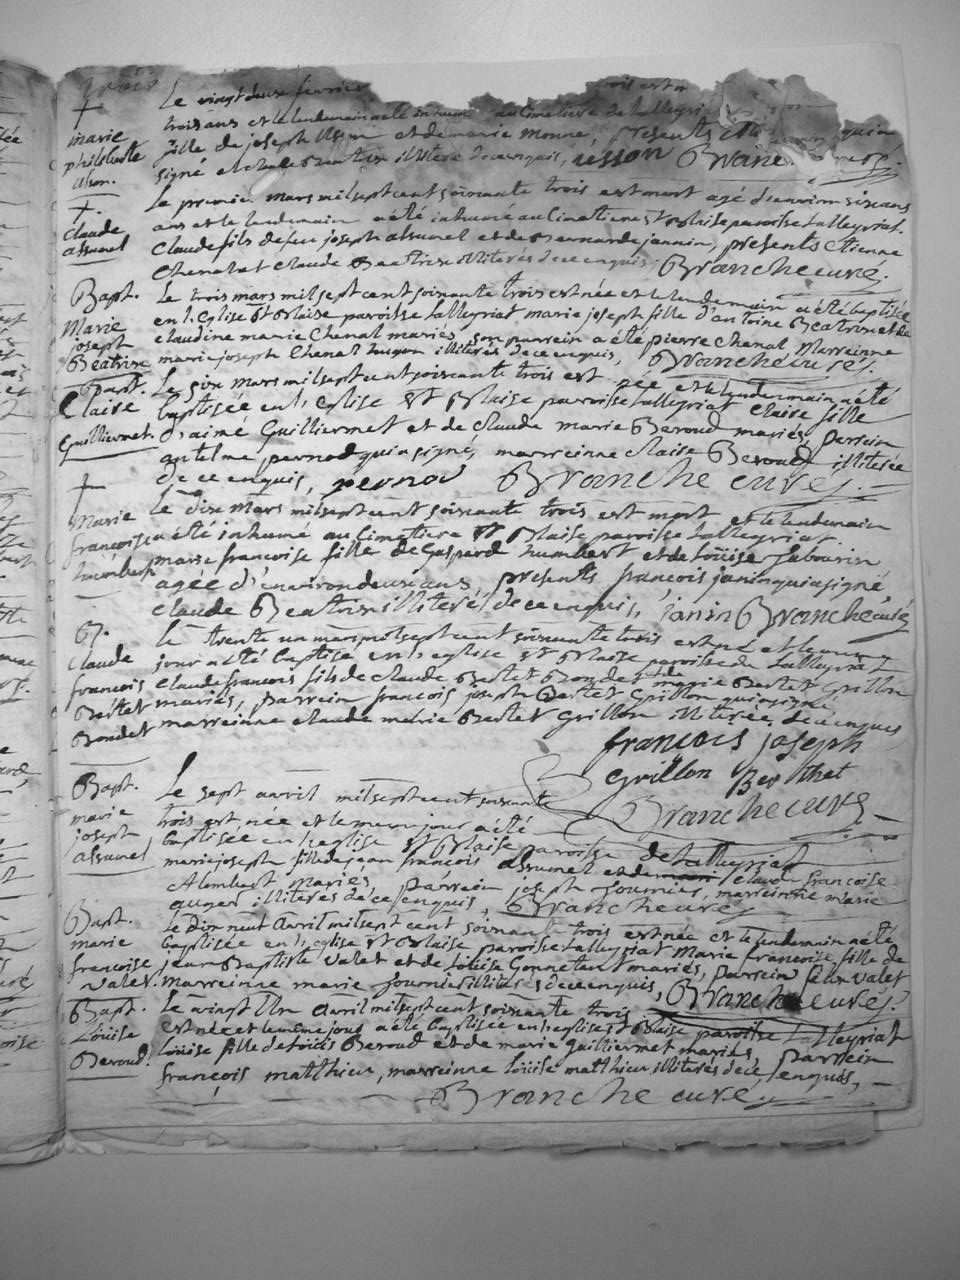 trois
†
marie
philiberte
Le vingt deux février est
trois ans et le lendemain a été inhumé au Cimetière de talleyriat
fille de joseph et de marie Monne, presents
signé et claude Beatrix illiteré de ce enquis,
†
Claude
assumel
Le premier mars mil sept cent soixante trois est mort agé d'environ six ans
ans et le lendemain a été inhumé au Cimetiere St Blaise paroisse talleyriat
Claude fils de feu joseph assumel et de Bernarde jannin, presents Etienne
Chenal et Claude Beatrix illiterés de ce enquis Branche curé.
Bapt.
Marie
joseph
Béatrix
Le trois mars mil sept cent soixante trois est née et le lendemain a été baptisée
en l'Eglise St Blaise paroisse talleyriat marie joseph fille d'antoine Beatrix et de
claudine marie Chenal mariés, son parrein a été pierre Chenal Marreinne
marie joseph Chenal illiterés de ce enquis, Branche curé.
Bapt.
Claire
Guilliermet.
Le six mars mil sept cent soixante trois est née et le lendemain a été
baptisée en l'Eglise St Blaise paroisse talleyriat Claire fille
d'aimé Guilliermet et de Claude marie Beroud mariés, parrein
antelme pernod qui a signé, marreinne claire Beroud illiterée
de ce enquis, pernod Branche curé.
†
Marie
françoise
humbert
Le dix mars mil sept cent soixante trois est mort et le lendemain
a été inhumé au Cimetiere St Blaise paroisse talleyriat
marie françoise fille de Gaspard humbert et de Loüise Jabourin
agée d'environ deux ans, presents françois janin qui a signé,
Claude Beatrix illiteré de ce enquis, janin Branche curé
B.
Claude
françois
Bertet
Bondet
Le trente un mars mil sept cent soixante trois est né et le même
jour a été baptisé en l'eglise St Blaise paroisse de talleyriat
Claude françois fils de claude Bertet Bondet et de marie Bertet Grillon
mariés, parrein françois joseph Bertet Grillon qui a signé,
marreinne claude marie Bertet Grillon illiterée de ce enquis
françois joseph
Grillon Berthet
Branche curé
Bapt.
marie
joseph
assumel
Le sept avril mil sept cent soixante
trois est née et le meme jour a été
baptisée en l'eglise St Blaise paroisse de talleyriat
marie joseph fille de jean françois assumel et de Claude françoise
Alombert mariés, parrein joseph fournier, marreinne marie
illiterés de ce enquis, Branche curé
Bapt.
marie
françoise
Valet.
Le Dix neuf Avril mil sept cent soixante trois est née et le lendemain a été
baptisée en l'eglise St Blaise paroisse talleyriat Marie françoise fille de
jean Baptiste Valet et de Loüise Gonnetant mariés, parrein felix valet
Marreinne marie fournier illiterés de ce enquis, Branche curé.
Bapt.
Loüise
Beroud.
Le vingt Un avril mil sept cent soixante trois
est née et le même jour a été baptisée en l'eglise St Blaise paroisse talleyriat
Loüise fille de Loüis Beroud et de marie Guilliermet mariés, parrein
françois matthieu, marreinne Loüise matthieu illiterés de ce enquis,
Branche curé